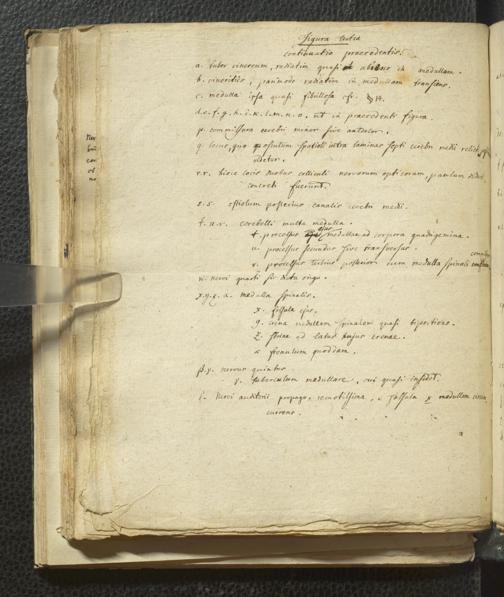 Figura tertia
continuatio praecedentis.
a. tuber cinereum, radiatim quasi abiens in medullam.
b. cineritia, pandendo radiatim in medullam transiens.
c. medulla ipsa quasi fibrillosa cfr. §14.
d.e.f.g.h.i.k.l.m.n.o. ut in praecedenti figura.
p. commissura cerebri minor sive anterior.
q. locus, quo positum spatioli intra laminas septi cerebri medii
videtur.
r.r. hisce locis ambo colliculi nervorum opticorum, paulum
concreti fuerunt.
s.s. ostiolum posterius canalis cerebri medii.
t.u.v. cerebelli multa medulla.
t. processus ejus medullae ad corpora quadrigemina.
u. processus secundus sive transversus.
v. processus tertius posterior cum medulla spinali
w. nervi quarti
x.y.z. α. medulla spinalis.
x. fossula ejus.
y. crena medullam spinalem quasi bipartiens.
z. striae ad latus hujus crenae.
α frenulum quoddam.
β.γ. nervus quintus
γ. tuberculum medullare, cui quasi insidet.
δ. Nervi auditorii propago, remotissima, e fossula x medullam circum
currens.